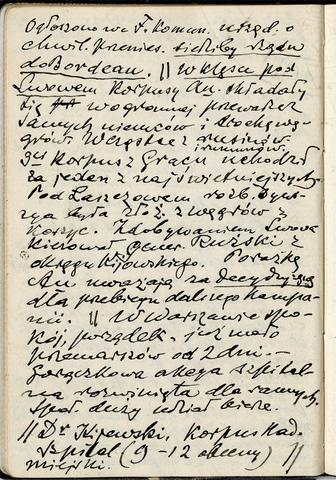 Ogłoszono we F. Komun. urzęd. o
chwil. przenies. siedziby rządu
do Bordeau. || W klęsce pod
Lwowem Korpusy Au. składały
się w ogromnej przewadze
z samych niemców i trochę wę-
grów. Wreszcie z rusinów
i rumunów.
3ci Korpus z Gracu uchodził
za jeden z najświetniejszych.
Pod Laszczowem rozb. dywi-
zya była złoż. z węgrów z
Koszyc. Zdobywaniem Lwowa
kierował gener. Ruzski z
okręgu Kijowskiego. Porażkę
Au uważają za decydującą
dla przebiegu dalszego kampa-
nii. || W Warszawie spo-
kój, porządek, już mało
przemarszów od 2 dni. —
Gorączkowa akcya szpital-
na rozwinięta dla rannych.
Społ. duży udział bierze.
|| Dr Kijewski, Korpus Kad.
szpital (9 – 12 obecny) ||
miejski.